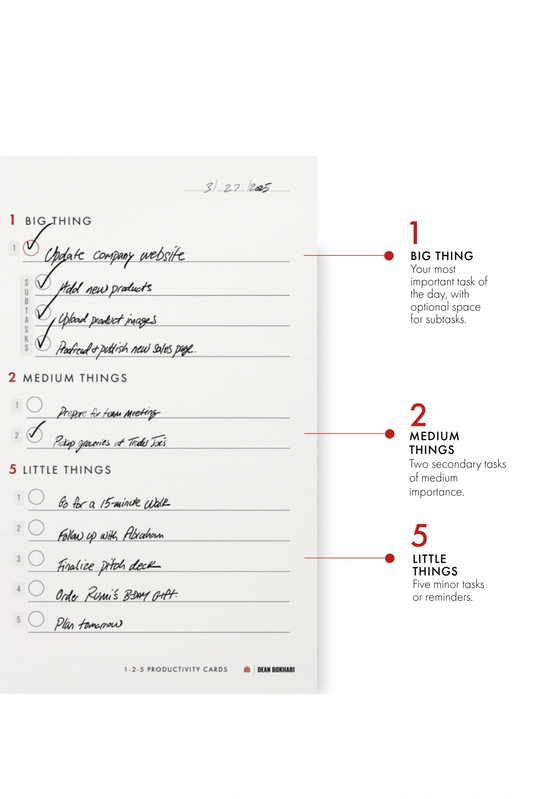 3/ 27 /2025
1 BIG THING
1 Update company website
SUBTASKS
Add new products
Upload product images
Proofread + publish new sales page.
2 MEDIUM THINGS
1 Prepare for team meeting
2 Pickup groceries at Trader Joe's
5 LITTLE THINGS
1 Go for a 15-minute walk
2 Follow up with Abraham
3 Finalize pitch deck
4 Order Rumi's BDAY GIFT.
5 Plan tomorrow
1-2-5 PRODUCTIVITY CARDS DEAN BOKHARI
1
BIG THING
Your most
important task of
the day, with
optional space
for subtasks.
2
MEDIUM
THINGS
Two secondary tasks
of medium
importance.
5
LITTLE
THINGS
Five minor tasks
or reminders.